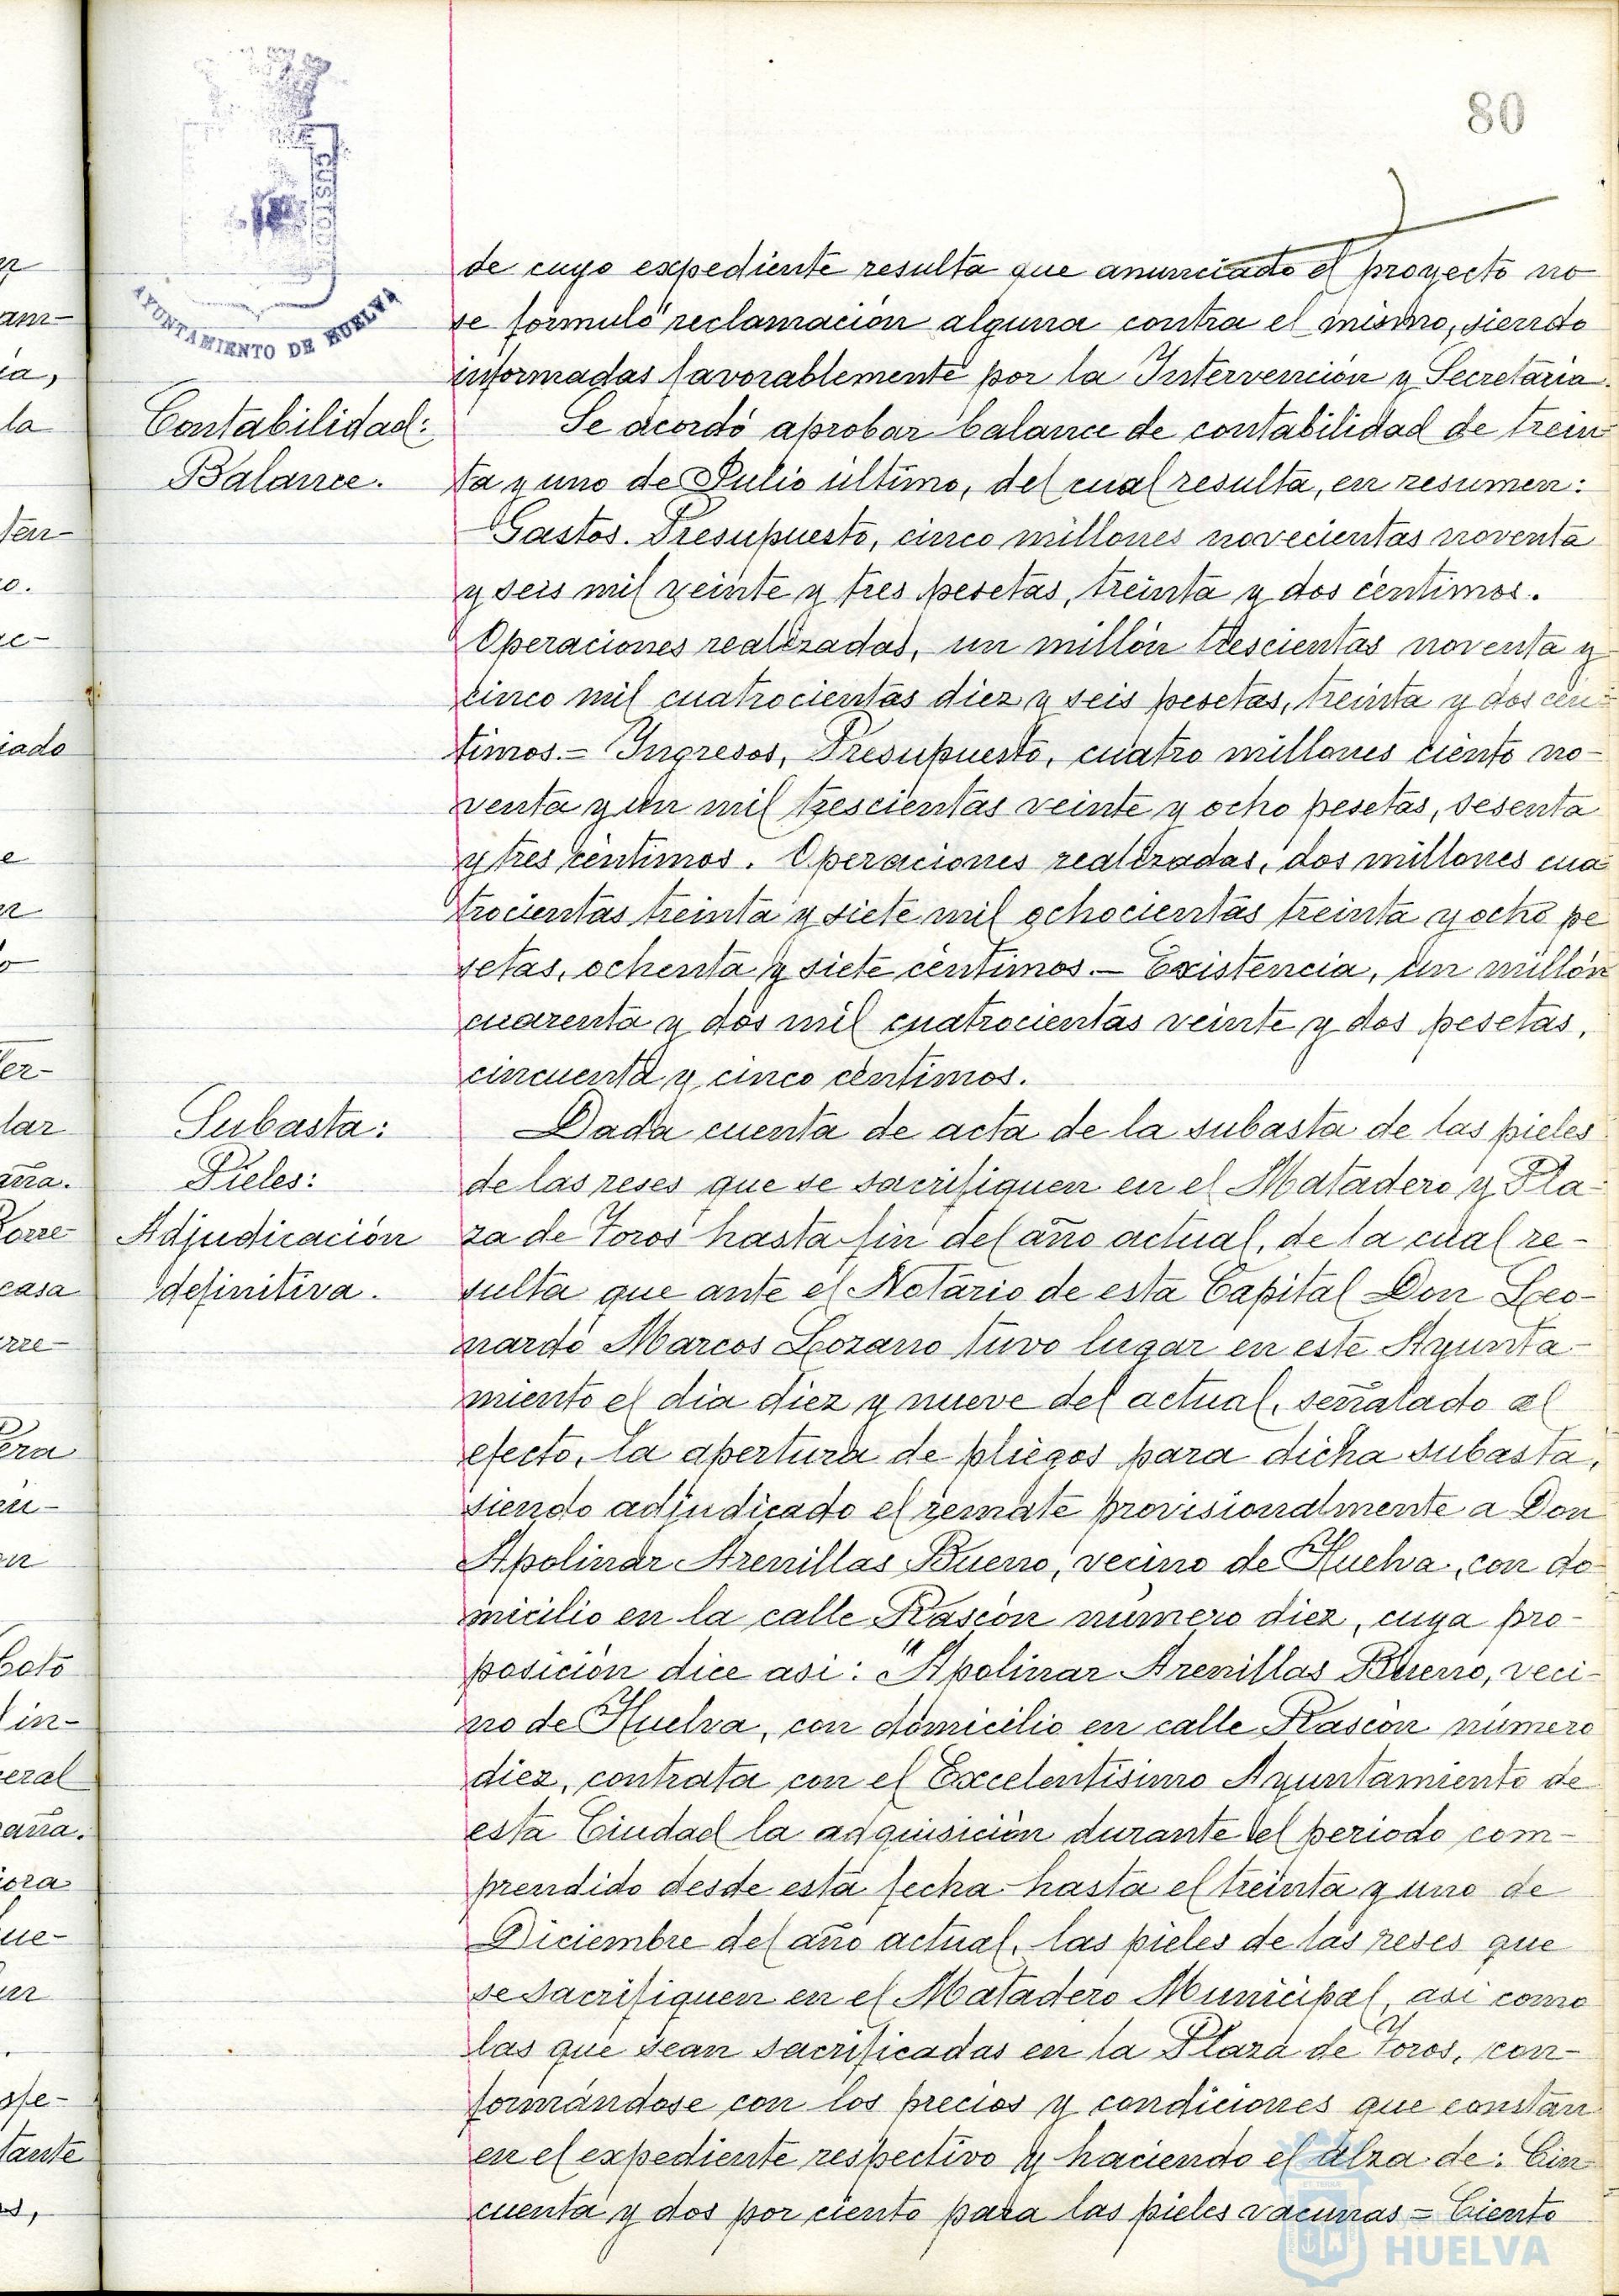 80
AYUNTAMIENTO DE HUELVA
CUSTOD
de cuyo expediente resulta que anunciado el proyecto no
se formuló reclamación alguna contra el mismo, siendo
informadas favorablemente por la Intervención y Secretaría.
Contabilidad:
Balance.
Se acordó aprobar balance de contabilidad de trein
ta y uno de Julio último, del cual resulta, en resumen:
Gastos. Presupuesto, cinco millones novecientas noventa
y seis mil veinte y tres pesetas, treinta y dos céntimos.
Operaciones realizadas, un millón trescientas noventa y
cinco mil cuatrocientas diez y seis pesetas, treinta y dos cén-
timos.- Ingresos, Presupuesto, cuatro millones ciento no-
venta y un mil trescientas veinte y ocho pesetas, sesenta
y tres céntimos. Operaciones realizadas, dos millones cua
trocientas treinta y siete mil ochocientas treinta y ocho pe
setas, ochenta y siete céntimos.- Existencia, un millón
cuarenta y dos mil cuatrocientas veinte y dos pesetas,
cincuenta y cinco céntimos.
Subasta:
Pieles:
Adjudicación
definitiva.
Dada cuenta de acta de la subasta de las pieles
de las reses que se sacrifiquen en el Matadero y Pla-
za de Toros hasta fin del año actual, de la cual re-
sulta que ante el Notario de esta Capital Don Leo-
nardo Marcos Lozano tuvo lugar en este Ayunta-
miento el dia diez y nueve del actual, señalado al
efecto, la apertura de pliegos para dicha subasta,
siendo adjudicado el remate provisionalmente a Don
Apolinar Arenillas Bueno, vecino de Huelva, con do
micilio en la calle Rascón número diez, cuya pro-
posición dice asi: "Apolinar Arenillas Bueno, veci-
no de Huelva, con domicilio en calle Rascón número
diez, contrata con el Excelentísimo Ayuntamiento de
esta Ciudad la adquisición durante el periodo com-
prendido desde esta fecha hasta el treinta y uno de
Diciembre del año actual, las pieles de las reses que
se sacrifiquen en el Matadero Municipal, asi como
las que sean sacrificadas en la Plaza de Toros, con-
formándose con los precios y condiciones que constan
en el expediente respectivo y haciendo el alza de: Cin
cuenta y dos por ciento para las pieles vacunas = Ciento
HUELVA